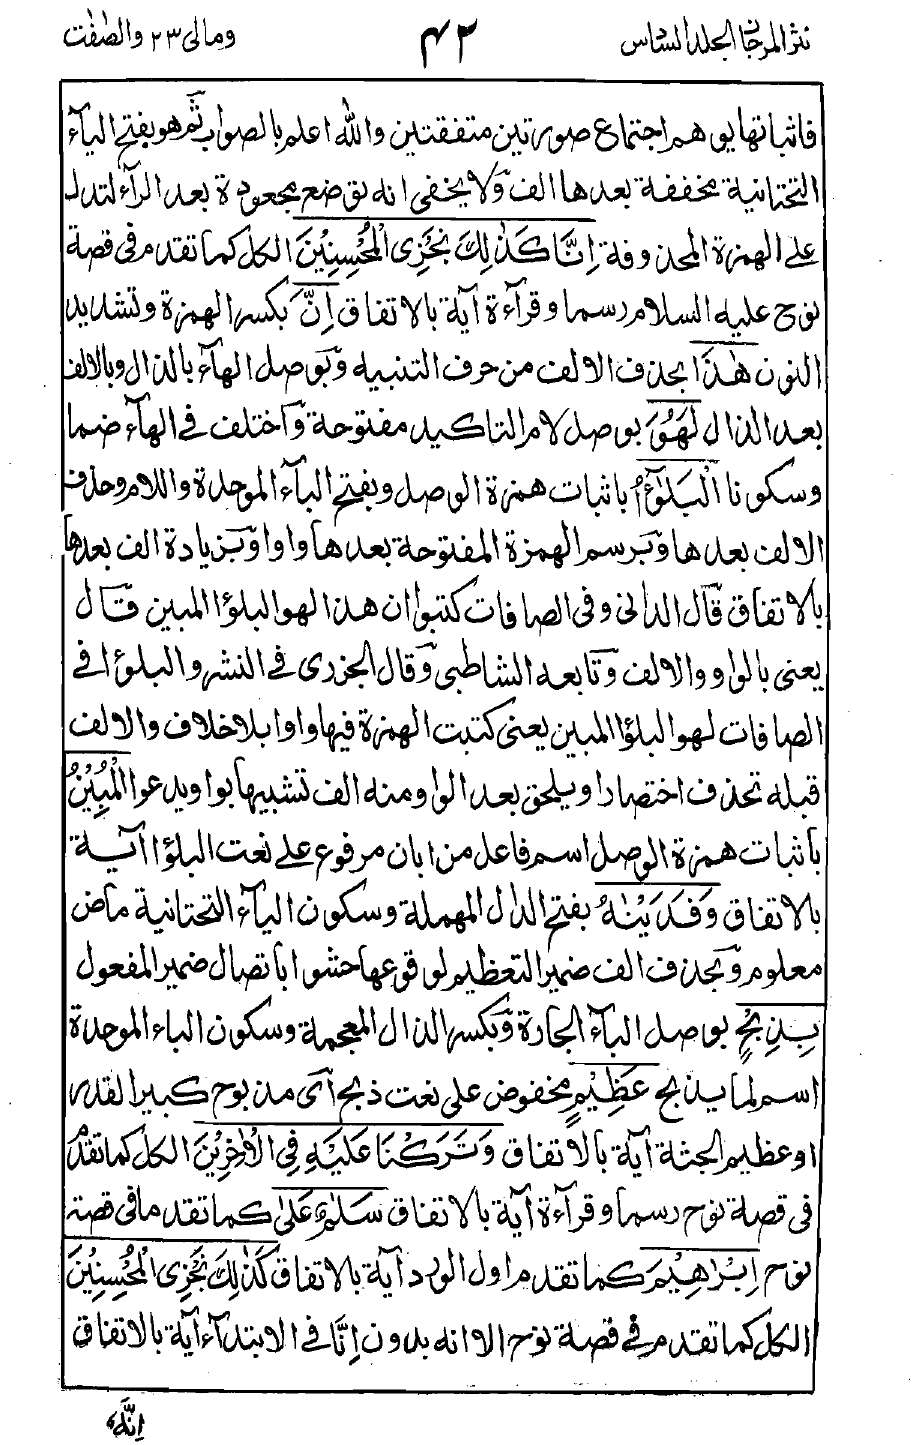 نثر المرجان الجلد السادس
٤٢
ومالى ٢٣ والصّٰفّٰت
فاثباتها يوهم اجتماع صورتين متفقتين والله اعلم بالصواب ثم هو بفتح اليآء
التحتانية مخففة بعدها الف وَلا يخفى انه يوضع مجعودة بعد الرآء لتدل
على الهمزة المحذوفة اِنَّا كَذٰلِكَ نَجْزِى الْمُحْسِنِيْنَ الكل كما تقدم فى قصة
نوح عليه السلام رسما وقرآءة آية بالاتفاق اِنَّ بكسر الهمزة وتشديد
النون هٰذَا بحذف الالف من حرف التنبيه وَبوصل الهآء بالذال وبالالف
بعد الذال لَهُوَ بوصل لام التاكيد مفتوحة وَاختلف فى الهآء ضما
وسكونا الْبَلٰٓؤُا باثبات همزة الوصل وبفتح البآء الموحدة واللام وحذف
الالف بعدها وَبرسم الهمزة المفتوحة بعدها واوا وَبزيادة الف بعدها
بالاتفاق قَال الدانى وفى الصافات كتبوا ان هذا لهو البلؤا المبين قَال
يعنى بالواو والالف وَتابعه الشاطبى وَقال الجزرى فى النشر والبلؤا فى
الصافات لهو البلؤا المبين يعنى كتبت الهمزة فيها واوا بلا خلاف والالف
قبله تحذف اختصارا ويلحق بعد الواو منه الف تشبيها بواو يدعوا الْمُبِيْنُ
باثبات همزة الوصل اسم فاعل من ابان مرفوع على نعت البلؤا آية
بالاتفاق وَفَدَيْنٰهُ بفتح الدال المهملة وسكون اليآء التحتانية ماض
معلوم وَبحذف الف ضمير التعظيم لوقوعها حشوا باتصال ضمير المفعول
بِذِبْحٍ بوصل البآء الجارة وَبكسر الذال المعجمة وسكون الباء الموحدة
اسم لما يذبح عَظِيْمٍ مخفوض على نعت ذبح اَى مذبوح كبير القدر
او عظيم الجثة آية بالاتفاق وَتَرَكْنَا عَلَيْهِ فِى الْاٰخِرِيْنَ الكل كما تقدم
فى قصة نوح رسما وقرآءة آية بالاتفاق سَلٰمٌ عَلٰى كما تقدما فى قصة
نوح اِبْرٰهِيْمَ كما تقدم اول الورد آية بالاتفاق كَذٰلِكَ نَجْزِى الْمُحْسِنِيْنَ
الكل كما تقدم فى قصة نوح الا انه بدون اِنَّا فى الابتدآء آية بالاتفاق
اِنَّهُ